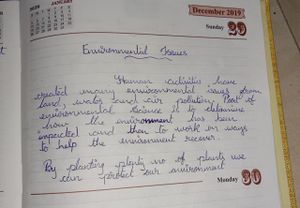 2020 JANUARY
December 2019
Sunday 29
Environmental Issues
Human activities have
created many environmental issues from
land, water and air pollution. Part of
environmental science is to determine
how the environment has been
impacted and then to work on ways
to help the environment recover.
By planting plenty no of plants we
can protect our environment
Monday 30